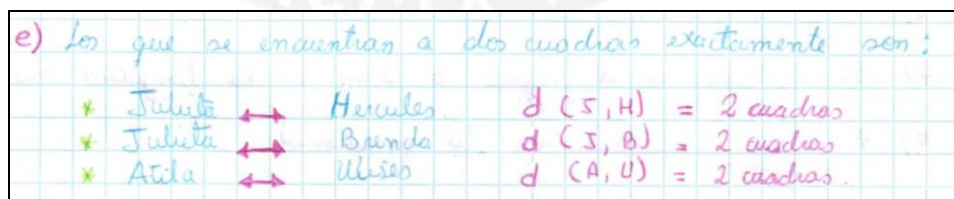 e) Los que se encuentran a dos cuadras exactamente son:
* Julieta ↔ Hercules. d (J, H) = 2 cuadras
* Julieta ↔ Brenda d (J, B) = 2 cuadras
* Atila ↔ Ulises d (A, U) = 2 cuadras.